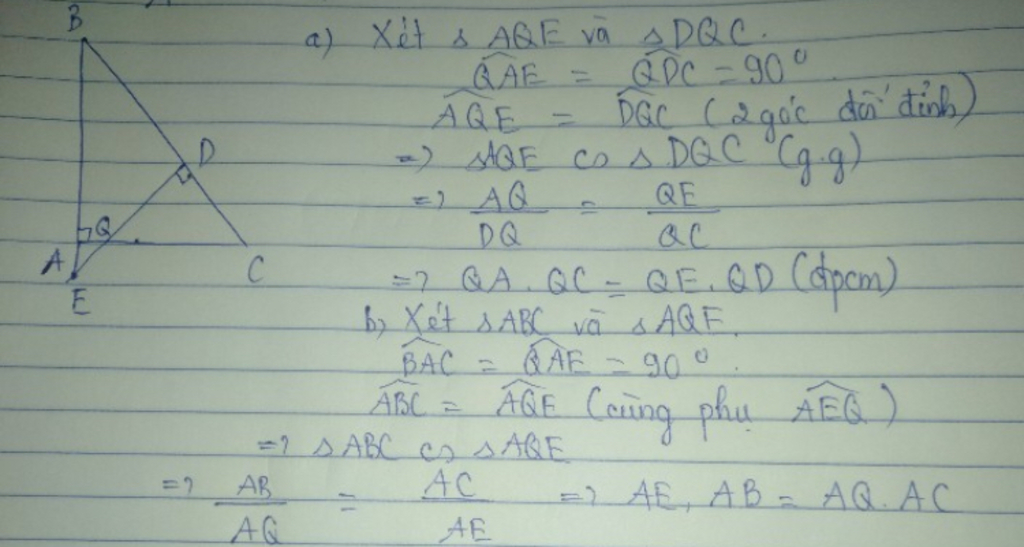 B
a) Xét △ AQE và △ DQC.
QAE = QDC = 90°
AQE = DQC (2 góc đối đỉnh)
D
=> △AQE ∽ △ DQC (g.g)
=> AQ/DQ = QE/QC
Q
A
C
E
=> QA . QC = QE . QD (đpcm)
b, Xét △ABC và △AQE.
BAC = QAE = 90°.
ABC = AQE (cùng phụ AEQ)
=> △ABC ∽ △AQE
=> AB/AQ = AC/AE => AE, AB = AQ . AC